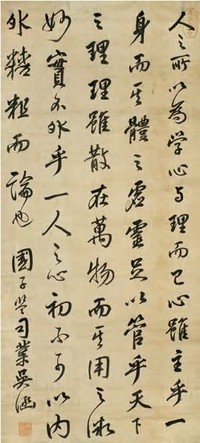 人之所以為学心与理而已心雖主乎一
身而其體之虚靈足以管乎天下
之理理雖散在萬物而其用之微
妙實不外乎一人之心初不可以内
外精粗而論也 國子監司業吳涵